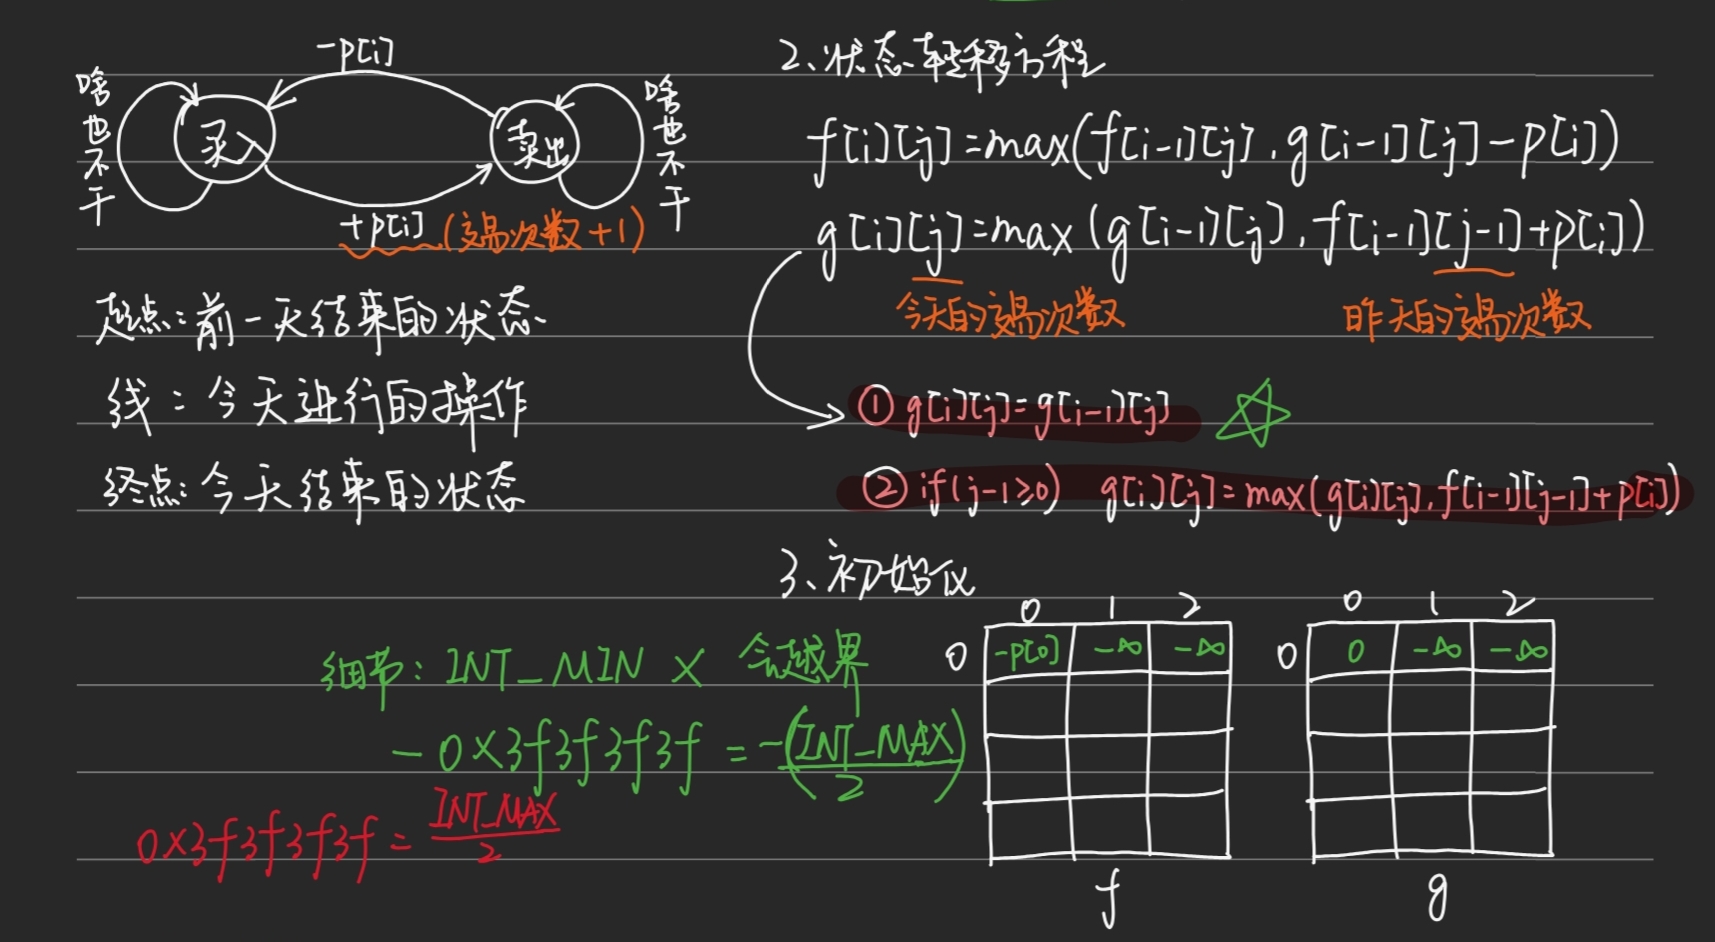 -p[i]
啥也不干
买入
卖出
啥也不干
+p[i] (交易次数+1)
起点:前一天结束的状态
线:今天进行的操作
终点:今天结束的状态
2、状态转移方程
f[i][j]=max(f[i-1][j],g[i-1][j]-p[i])
g[i][j]=max(g[i-1][j],f[i-1][j-1]+p[i])
今天的交易次数 昨天的交易次数
① g[i][j]=g[i-1][j]
② if(j-1≥0) g[i][j]=max(g[i][j],f[i-1][j-1]+p[i])
3、初始化
细节: INT_MIN × 会越界
-0x3f3f3f3f = -(INT_MAX/2)
0x3f3f3f3f = INT_MAX/2
0 1 2
0 -p[0] -∞ -∞
f
0 1 2
0 0 -∞ -∞
g